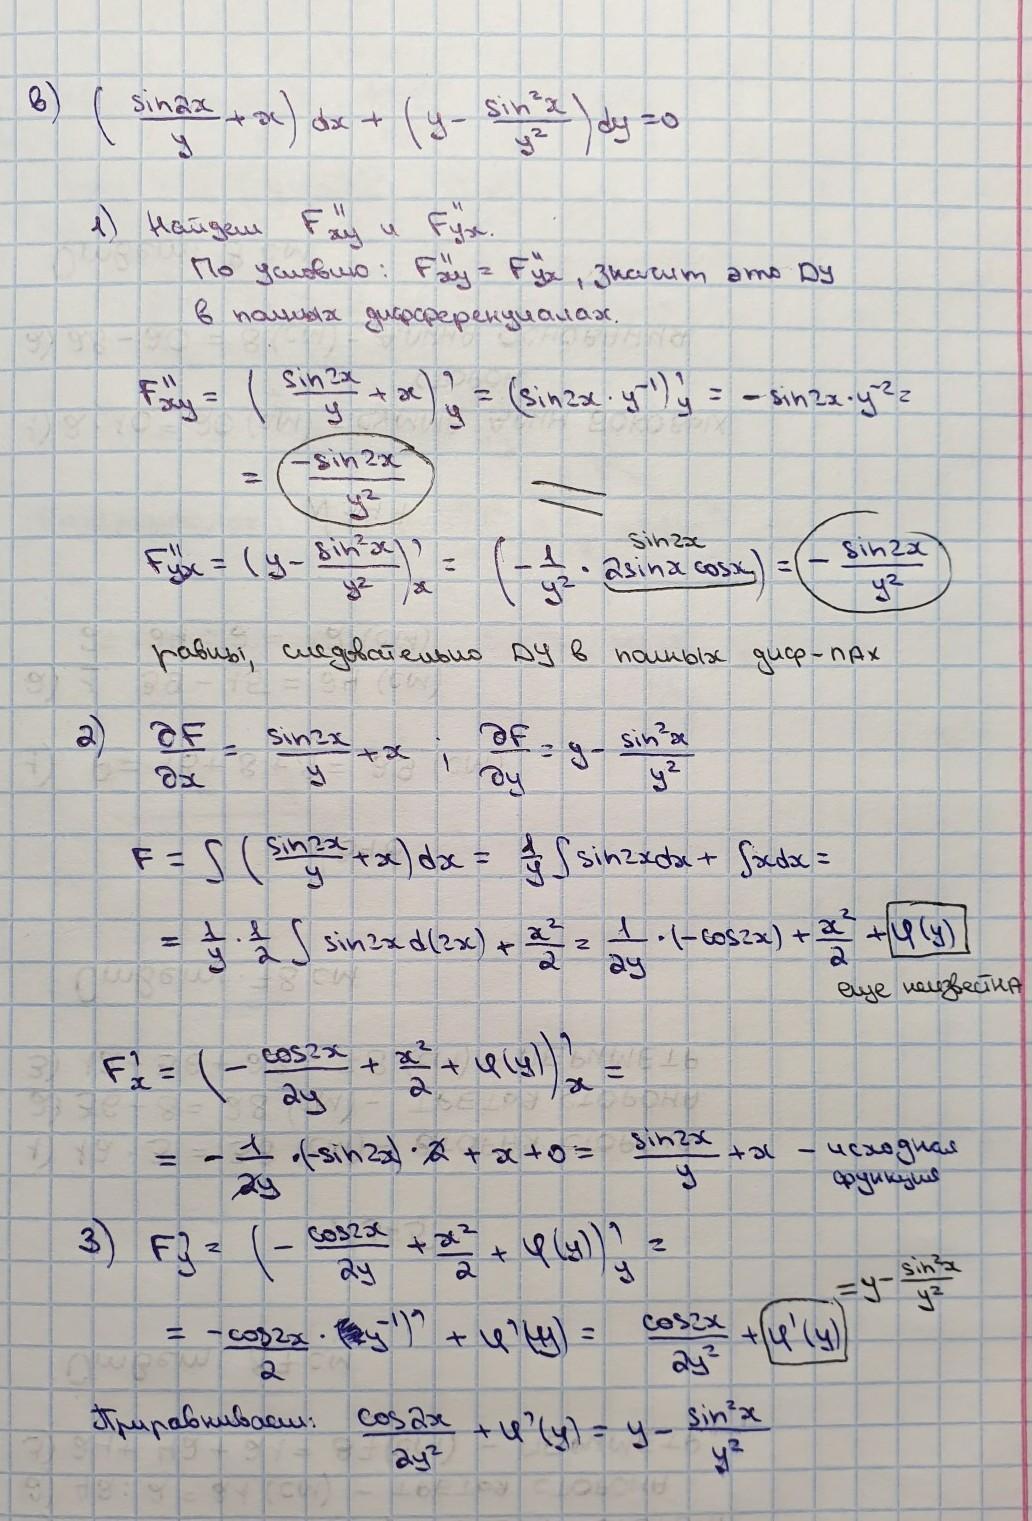 в) (sin2x/y + x) dx + (y - sin²x/y²) dy = 0
1) Найдем F''xy и F''yx.
По условию: F''xy = F''yx, значит это ДУ
в полных дифференциалах.
F''xy = (sin2x/y + x)'y = (sin2x · y⁻¹)'y = -sin2x · y⁻² =
= -sin2x/y²
F''yx = (y - sin²x/y²)'x = (-1/y² · 2sinx cosx) = - sin2x/y²
sin2x
равны, следовательно ДУ в полных диф-лах
2) ∂F/∂x = sin2x/y + x ; ∂F/∂y = y - sin²x/y²
F = ∫ (sin2x/y + x) dx = 1/y ∫ sin2x dx + ∫ x dx =
= 1/y · 1/2 ∫ sin2x d(2x) + x²/2 = 1/2y · (-cos2x) + x²/2 + φ(y)
еще неизвестна
F'x = (- cos2x/2y + x²/2 + φ(y))'x =
= - 1/2y · (-sin2x) · 2 + x + 0 = sin2x/y + x - исходная
функция
3) F'y = (- cos2x/2y + x²/2 + φ(y))'y =
= -cos2x/2 · (y⁻¹)' + φ'(y) = cos2x/2y² + φ'(y) = y - sin²x/y²
Приравниваем: cos2x/2y² + φ'(y) = y - sin²x/y²